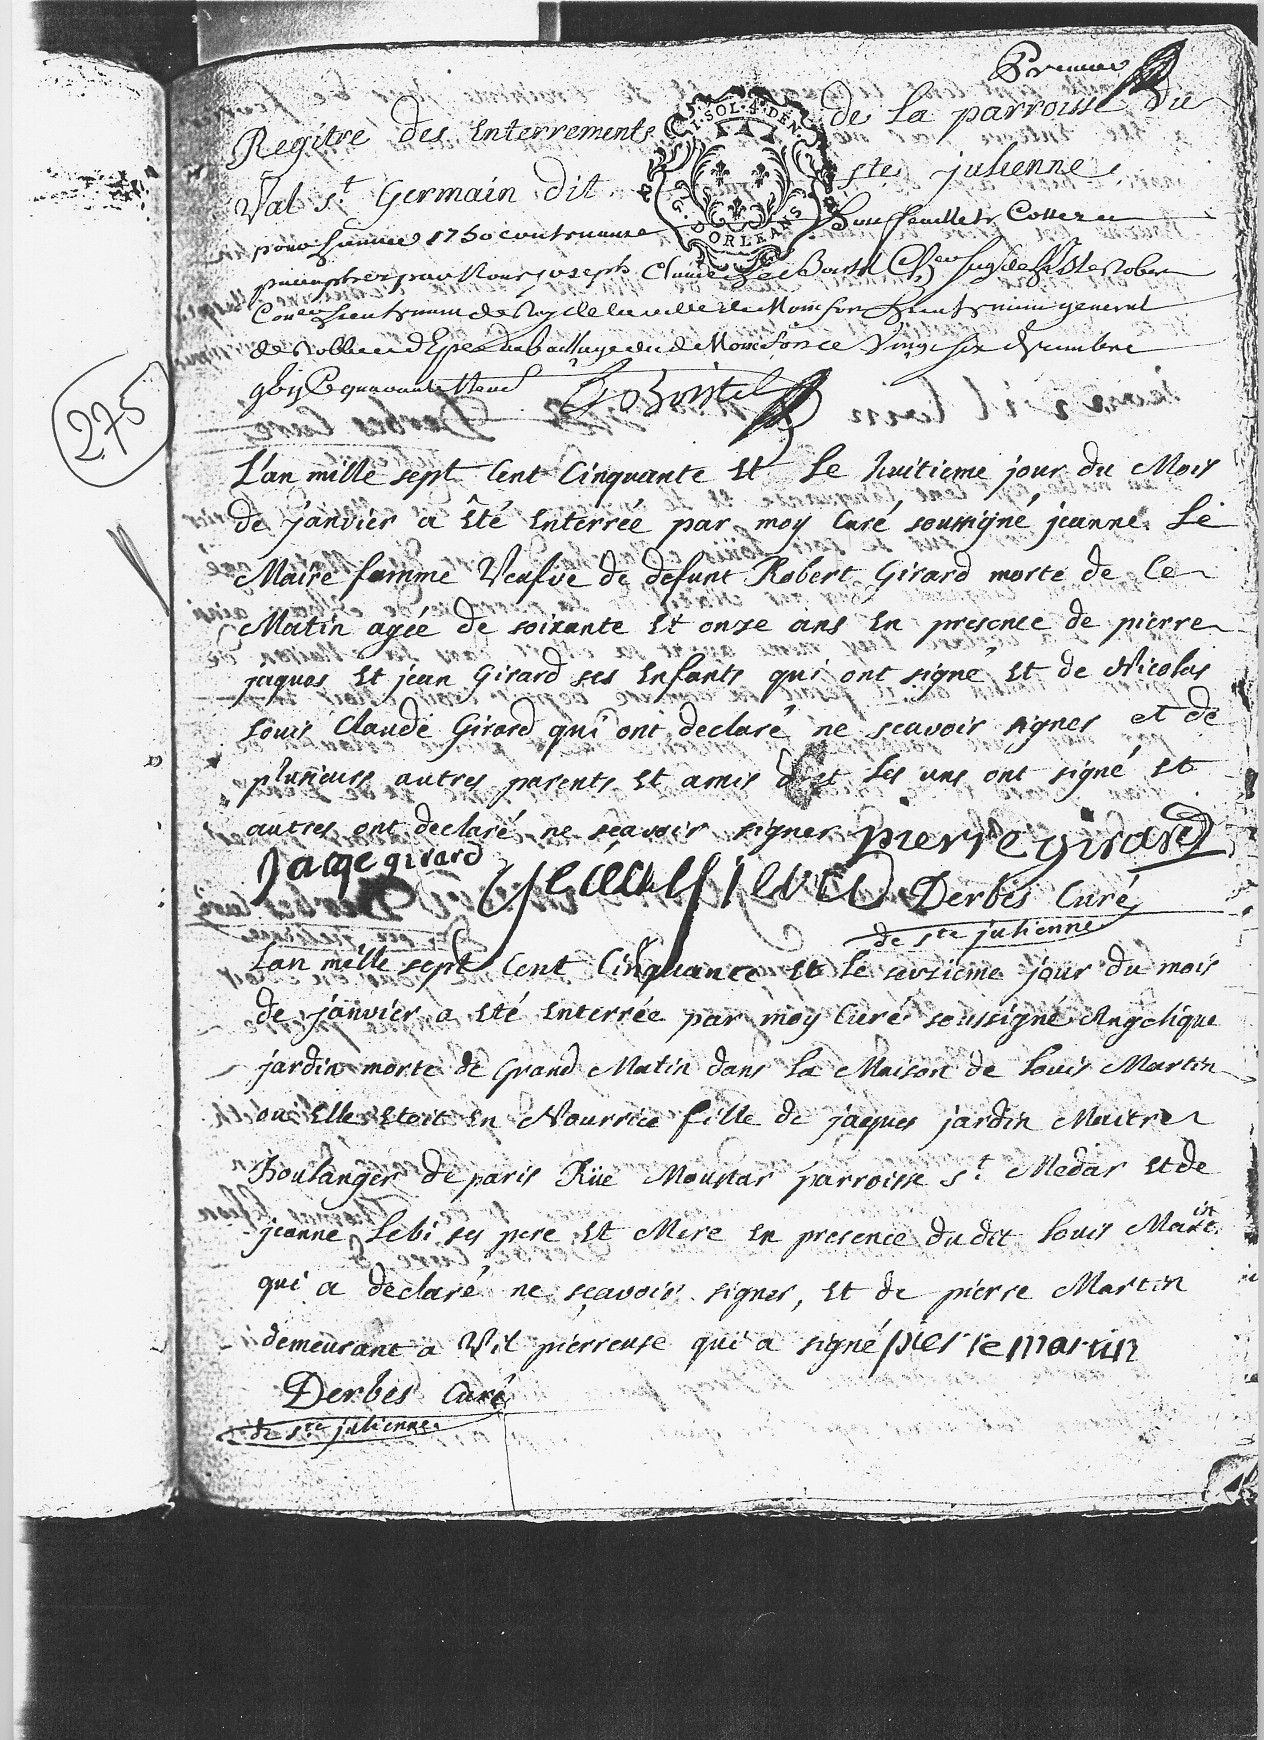 Premier
Regitre des Enterrements de la parroisse du
1. SOL. 4. DEN.
G. D'ORLEANS
Val st Germain dit ste julienne
pour Lannée 1750 contenant huit feuillets Cottez et
par Nous joseph
Lieutenant general
Vingt six decembre
quarante Neuf Boistel
275
L'an mille sept Cent Cinquante Et Le huitieme jour du Mois
de janvier a Eté Enterrée par moy Curé soussigné jeanne Le
Maire famme Veufve de defunt Robert Girard morte de Ce
Matin agée de soixante Et onze ans En presence de pierre
jaques Et jean Girard ses Enfants qui ont signé Et de Nicolas
Louis Claude Girard qui ont declaré ne scavoir signer et de
plusieurs autres parents Et amis dont Les uns ont signé Et
autres ont declaré ne sçavoir signer pierre girard
Jacqe girard
Derbes Curé
de ste julienne
Lan mille sept Cent Cinquante Et Le seizieme jour du mois
de janvier a Eté Enterrée par moy Curé soussigné Angelique
jardin morte de Grand Matin dans La Maison de Louis Martin
ou Elle Etoit En Nourrice fille de jaques jardin Maitre
Boulanger de paris Rüe Moustar parroisse st Medar Et de
jeanne Lebi ses pere Et Mere En presence du dit Louis Martin
qui a declaré ne sçavoir signer, Et de pierre Martin
demeurant a Vil pierreuse qui a signé pier re martin
Derbes Curé
de ste julienne